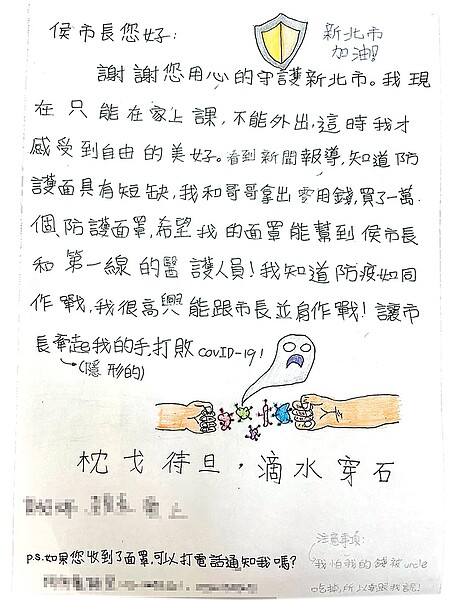 侯市長您好:
新北市
加油!
謝謝您用心的守護新北市。我現
在只能在家上課,不能外出,這時我才
感受到自由的美好。看到新聞報導,知道防
護面具有短缺,我和哥哥拿出零用錢,買了一萬
個防護面罩,希望我的面罩能幫到侯市長
和第一線的醫護人員!我知道防疫如同
作戰,我很高興能跟市長並肩作戰!讓市
長牽起我的手,打敗COVID-19!
(隱形的)
枕戈待旦,滴水穿石
p.s.如果您收到了面罩,可以打電話通知我嗎?
注意事項:
我怕我的錢被uncle
吃掉,所以要跟我說!